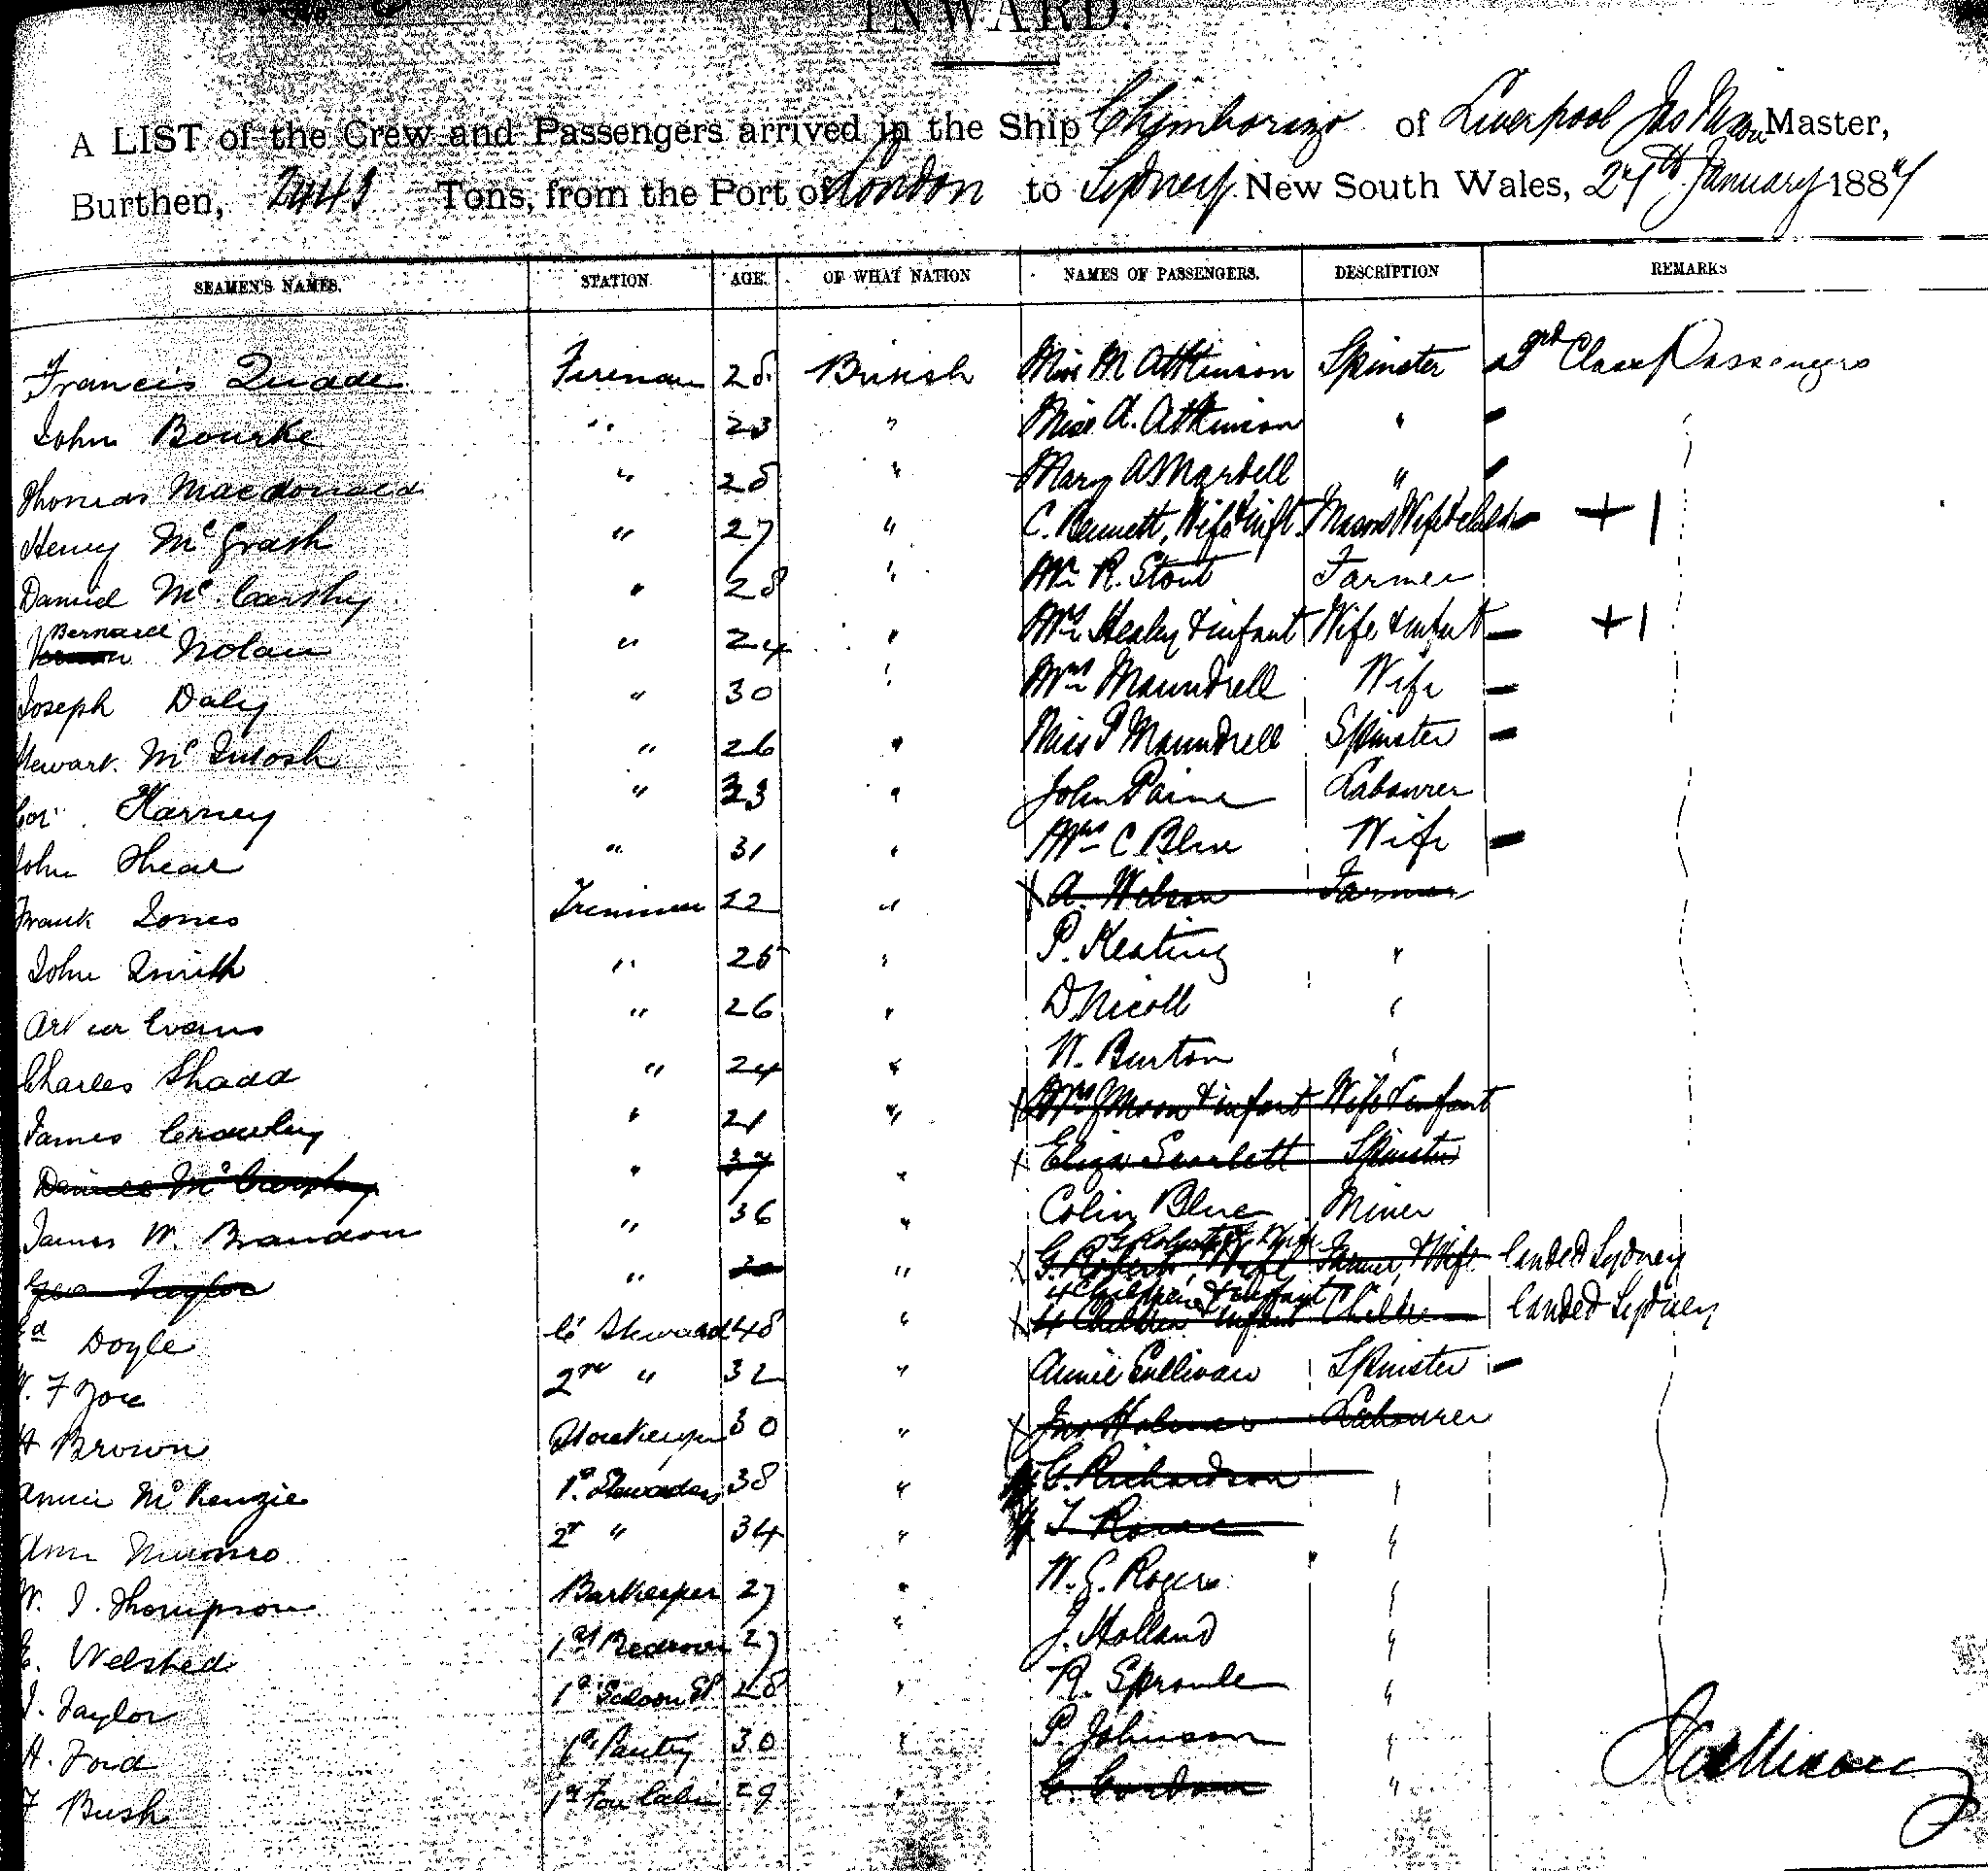 INWARD.
A LIST of the Crew and Passengers arrived in the Ship Chimborazo of Liverpool Jas Nixon Master,
Burthen, 2443 Tons, from the Port of London to Sydney New South Wales, 27th January 1887
SEAMEN'S NAMES. STATION AGE. OF WHAT NATION NAMES OF PASSENGERS. DESCRIPTION REMARKS
Francis Quade Fireman 28 British Miss M Atkinson Spinster 3rd Class Passengers
John Bourke " 23 " Miss A. Atkinson "
Thomas Macdonald " 28 " Mary A Mardell "
Henry McGrath " 27 " C. Bennett, Wife & inft. Mason Wife & child + 1
Daniel McCarthy " 28 " Mr R. Stout Farmer
Bernard Nolan " 24 " Mrs Healey & infant Wife & infant + 1
Joseph Daly " 30 " Mrs Maundrell Wife
Stewart McIntosh " 26 " Miss P Maundrell Spinster
Harney " 23 " John Paine Labourer
John Shear " 31 " Mrs C Blue Wife
Frank Jones Trimmer 22 " A. Wilson Farmer
John Smith " 25 " P. Keating "
Arthur Evans " 26 " D Nicoll "
Charles Shadd " 24 " W. Burton "
James Crowley " 21 " Mrs J Moon & infant Wife & infant
Daniel McCarthy " 37 " Eliza Scarlett Spinster
James W. Brandon " 36 " Colin Blue Miner
G Roberts & Wife
Geo Taylor " " G. Roberts, Wife Farmer & Wife landed Sydney
4 Children & infant
Doyle Ch Steward 48 " 4 Children & infant Children landed Sydney
W. F 2nd " 32 " Annie Sullivan Spinster
A Brown Storekeeper 30 " Jno Holmes Labourer
Annie McKenzie 1st Stewardess 38 " G. Richardson "
Ann Munro 2nd " 34 " T "
W. J. Thompson Barkeeper 27 " W. G. Rogers "
E. Welsted 1st Bedroom 27 " J. Holland "
J. Taylor 1st Saloon St 28 " R. Sproule "
H. Ford 1st Pantry 30 " P. Johnson "
F Bush 1st Fore Cabin 29 " C. Gordon "